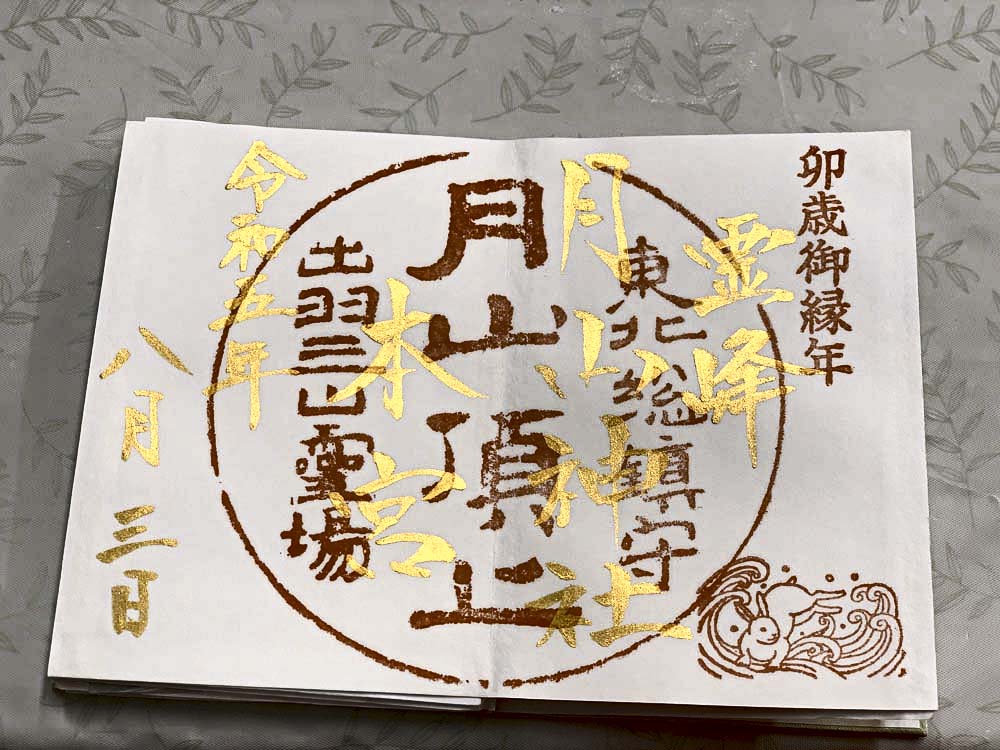 卯歳御縁年
霊峰
東北総鎮守
月山神社
月山頂上
本宮
出羽三山霊場
令和五年
八月三日